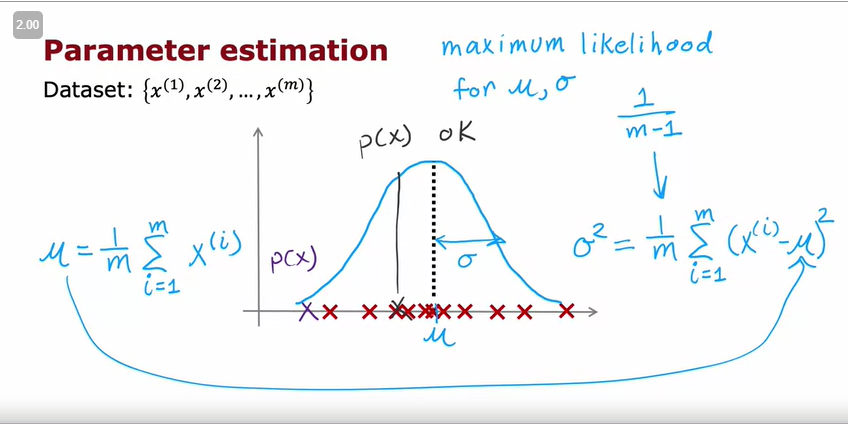 2.00
Parameter estimation
Dataset: {x^(1), x^(2), ..., x^(m)}
maximum likelihood
for μ, σ
1/(m-1)
p(x) ok
μ = 1/m Σ_{i=1}^{m} x^(i)
p(x)
σ
σ² = 1/m Σ_{i=1}^{m} (x^(i) - μ)²
μ